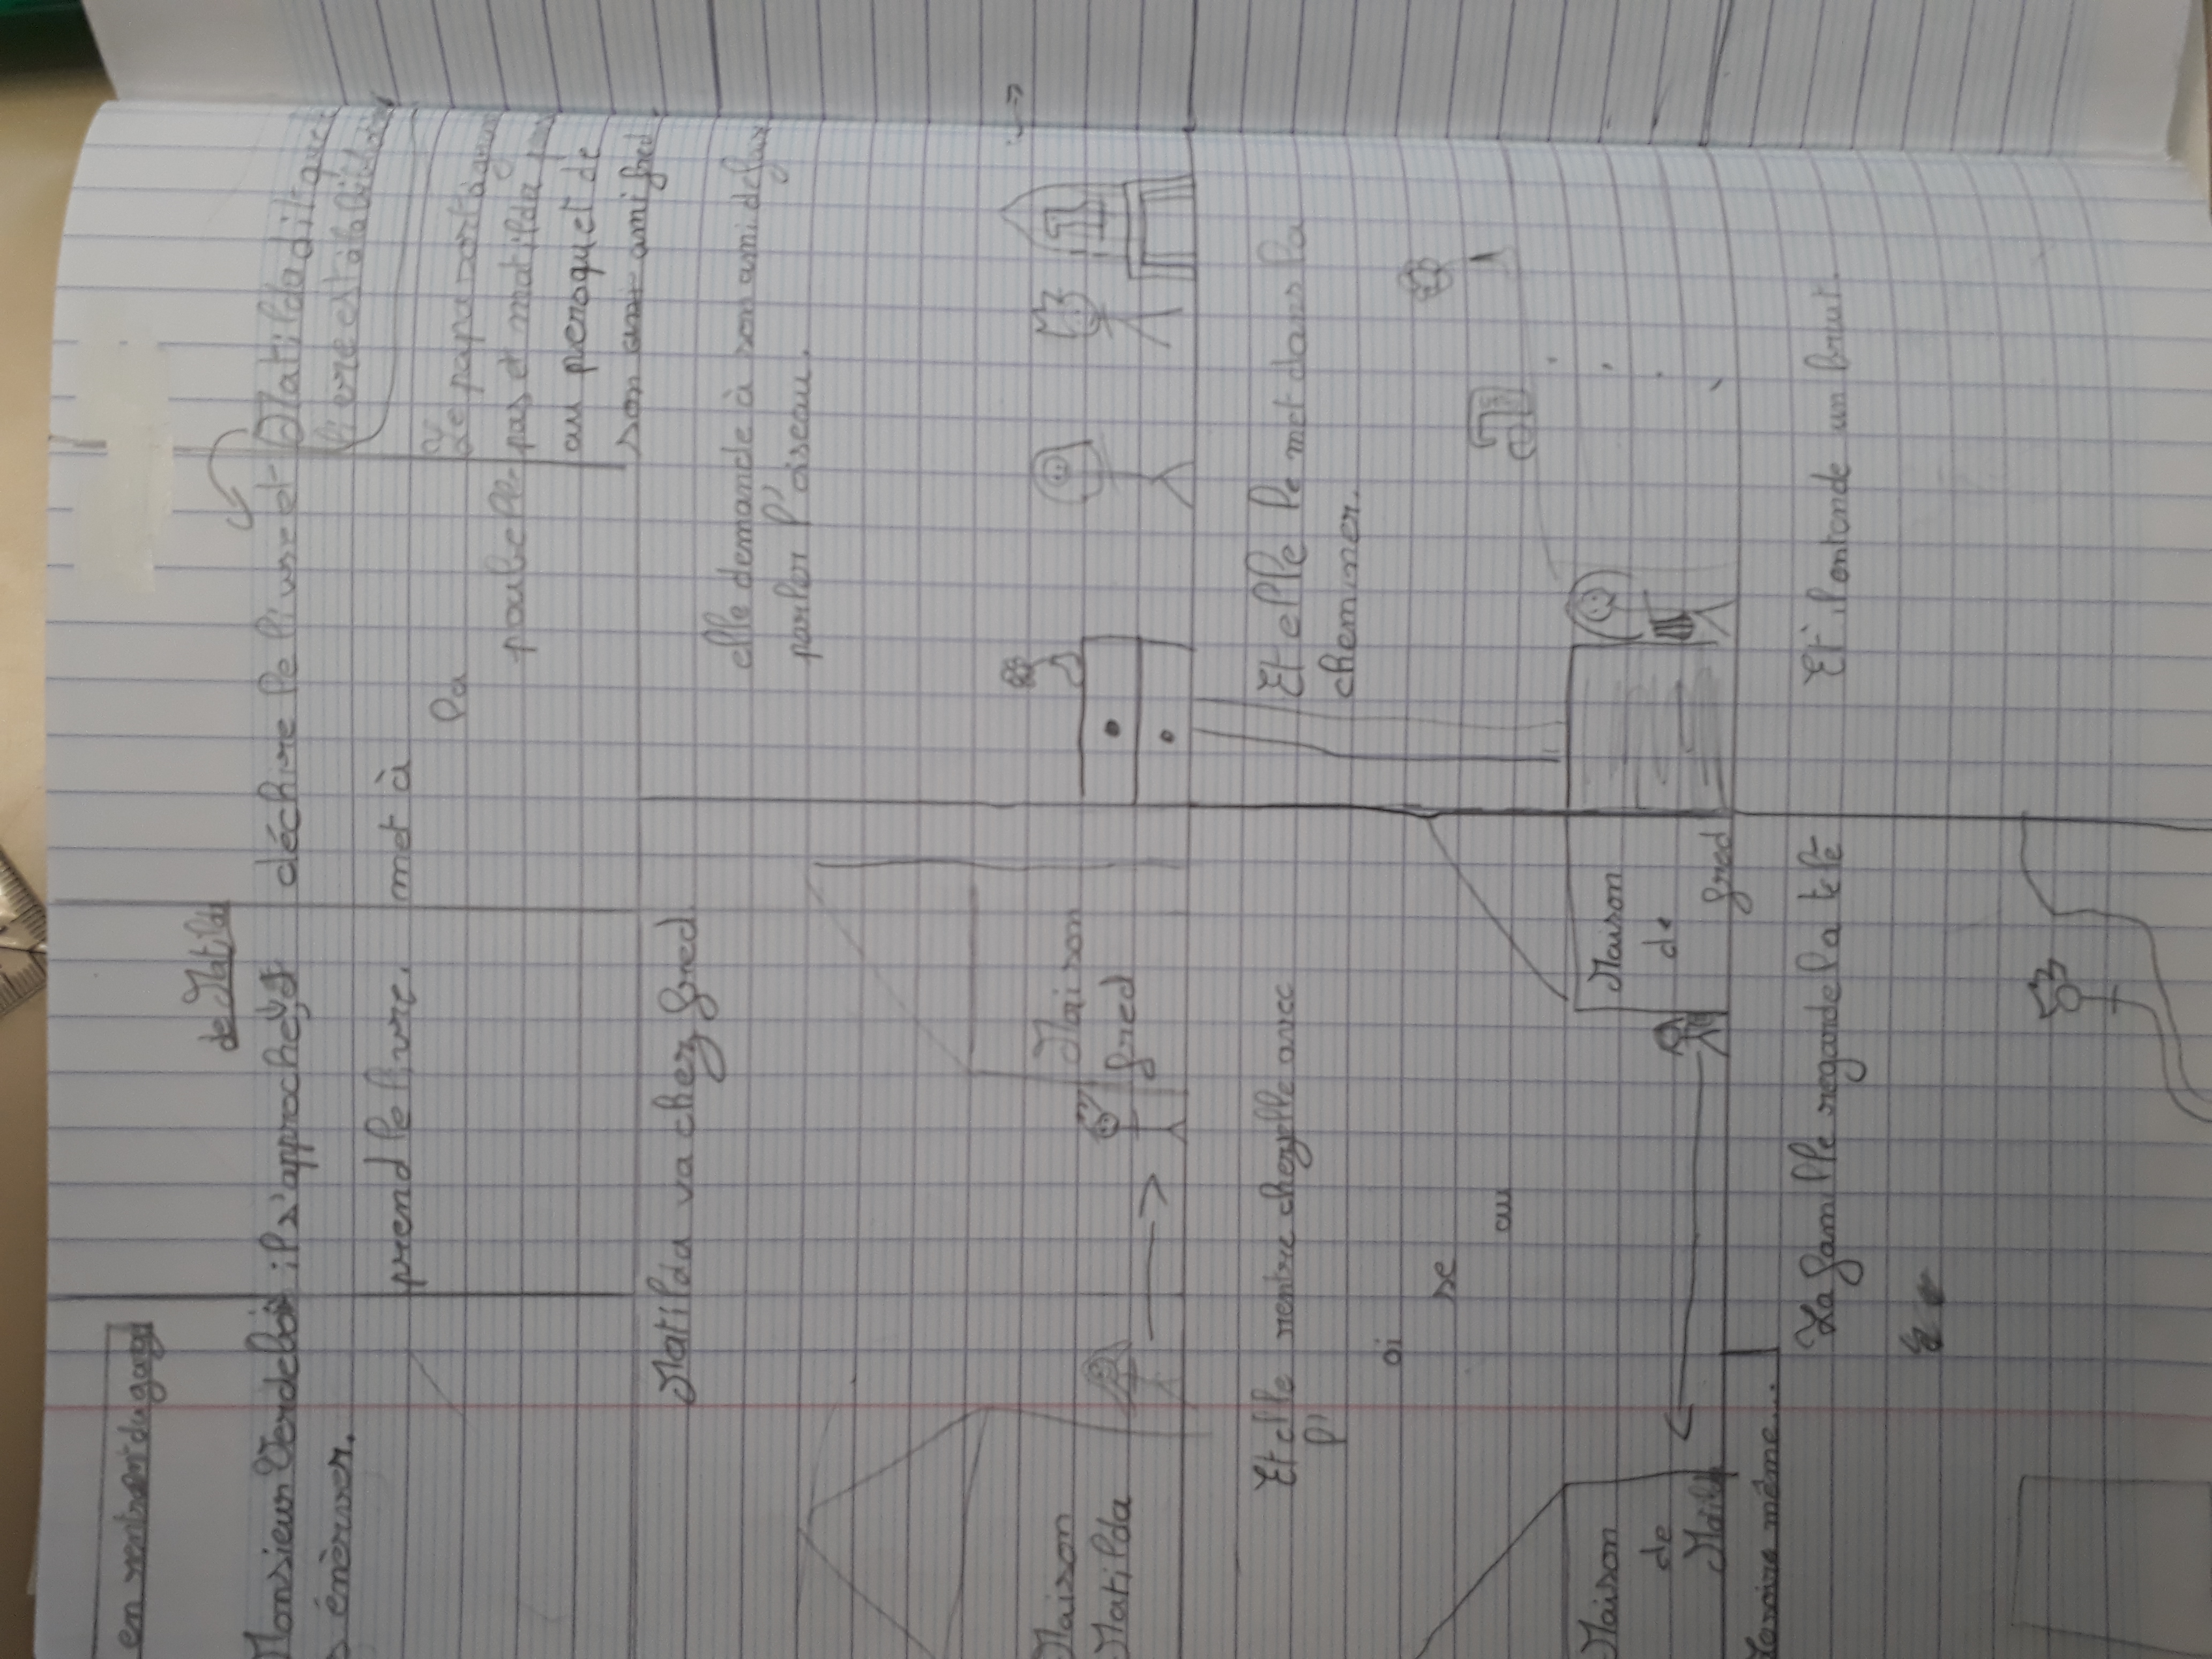 en rentrant du garage
de Matilda
Monsieur Verdebois
s'énèrver.
il s'approche,
prend le livre.
déchire le livre et
met à
la
poubelle
Matilda dit que
livre est à la
Le papa
pas et matilda
au peroquet de
son ami fred
Matilda va chez fred
elle demande à son ami de
parler l'oiseau.
Maison
Matilda
Maison
fred
Et elle rentre chez elle avec
l'
oi
se
au
Et elle le met dans la
cheminer.
Maison
de
Matilda
Maison
de
fred
même...
La famille regarde la télé
Et il entende un bruit.